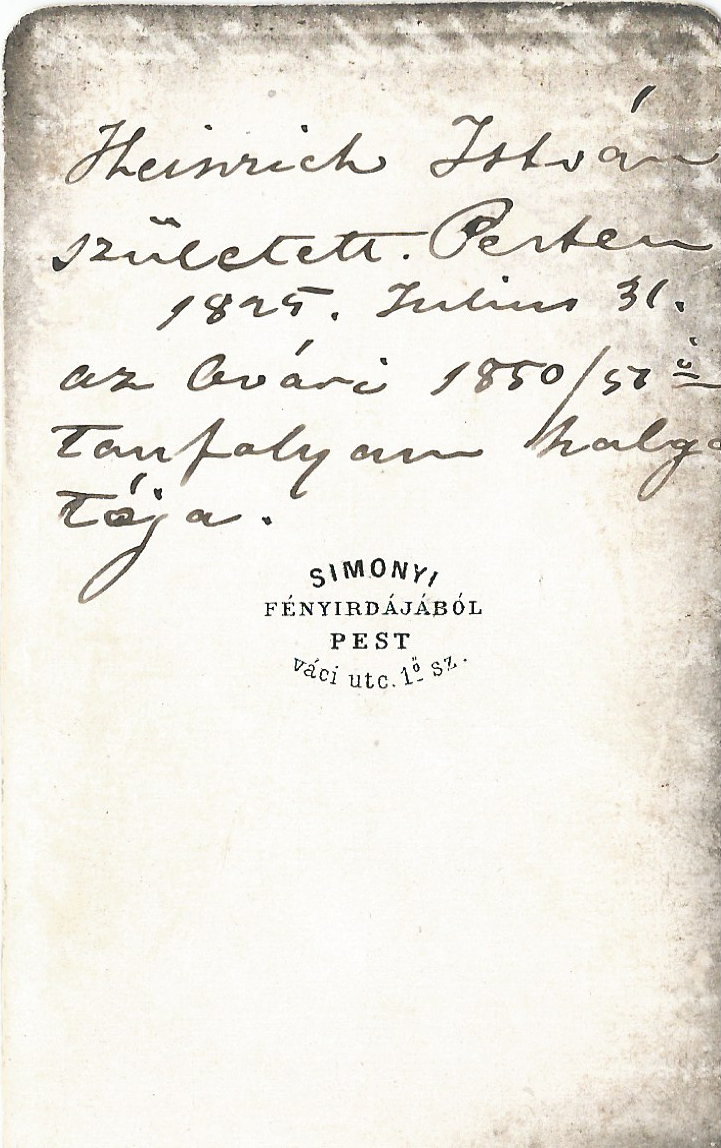 Heinrich István
született. Pesten
1825. Julius 31.
az Óvári 1850/51 ⁱ
tanfolyam halga
tója.
SIMONYI
FÉNYIRDÁJÁBÓL
PEST
váci utc. 1ő sz.